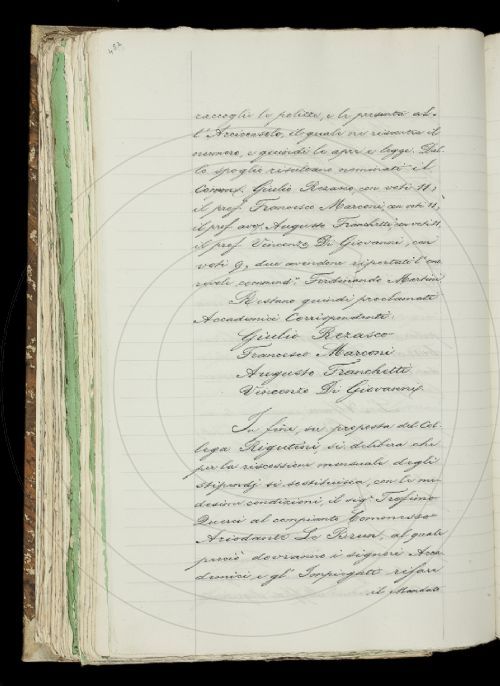 raccoglie le polizze, e le presenta al-
l'Arciconsolo, il quale ne riscontra il
numero, e quindi le apre e legge. Dal-
lo spoglio risultano nominati il
Comm. Giulio Rezasco, con voti 11;
il prof. Francesco Marconi, con voti 11,
il prof. avv. Augusto Franchetti con voti 11,
il prof. Vincenzo Di Giovanni, con
voti 9, due avendone riportati l'ono-
revole commend. Ferdinando Martini
Restano quindi proclamati
Accademici Corrispondenti:
Giulio Rezasco
Francesco Marconi
Augusto Franchetti
Vincenzo Di Giovanni.
In fine, su proposta del Col-
lega Rigutini si delibera che
per la riscossione mensuale degli
stipendj si sostituisca, con le me-
desime condizioni, il sig. Trofimo
Querci al compianto Commesso
Ariodante Le Brun, al quale
perciò dovranno i signori Acca-
demici e gl' Impiegati rifare
il Mandato